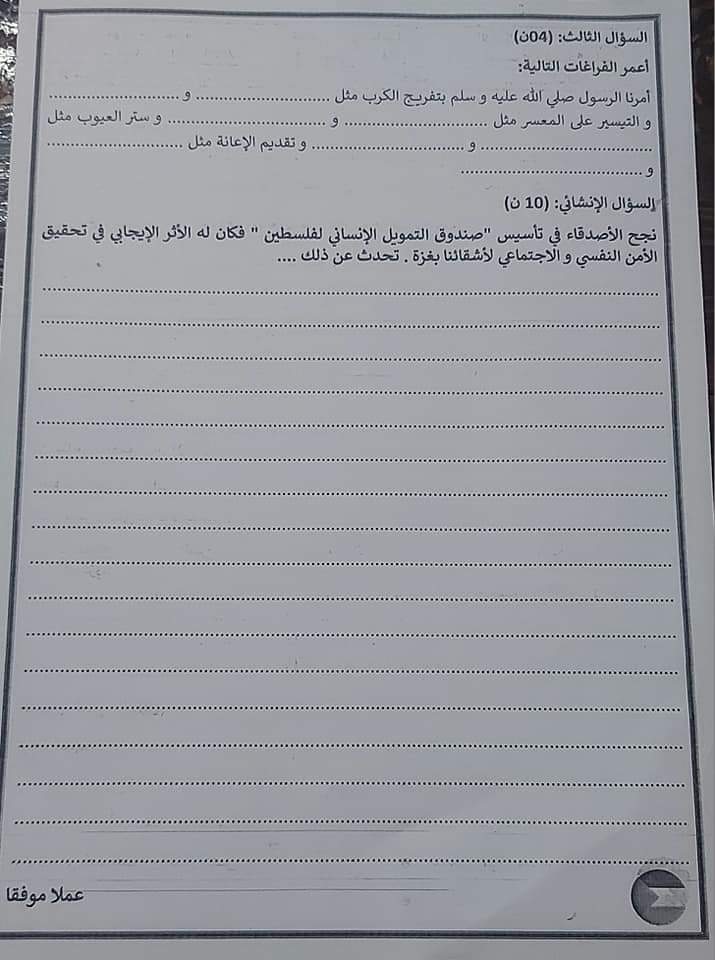 السؤال الثالث: (04ن)
أعمر الفراغات التالية:
أمرنا الرسول صلي الله عليه و سلم بتفريج الكرب مثل .............................. و ..............................
و التيسير على المعسر مثل .............................. و .............................. و ستر العيوب مثل
.............................. و .............................. و تقديم الإعانة مثل ..............................
و ..............................
السؤال الإنشائي: (10 ن)
نجح الأصدقاء في تأسيس "صندوق التمويل الإنساني لفلسطين " فكان له الأثر الإيجابي في تحقيق
الأمن النفسي و الاجتماعي لأشقائنا بغزة . تحدث عن ذلك ....
عملا موفقا